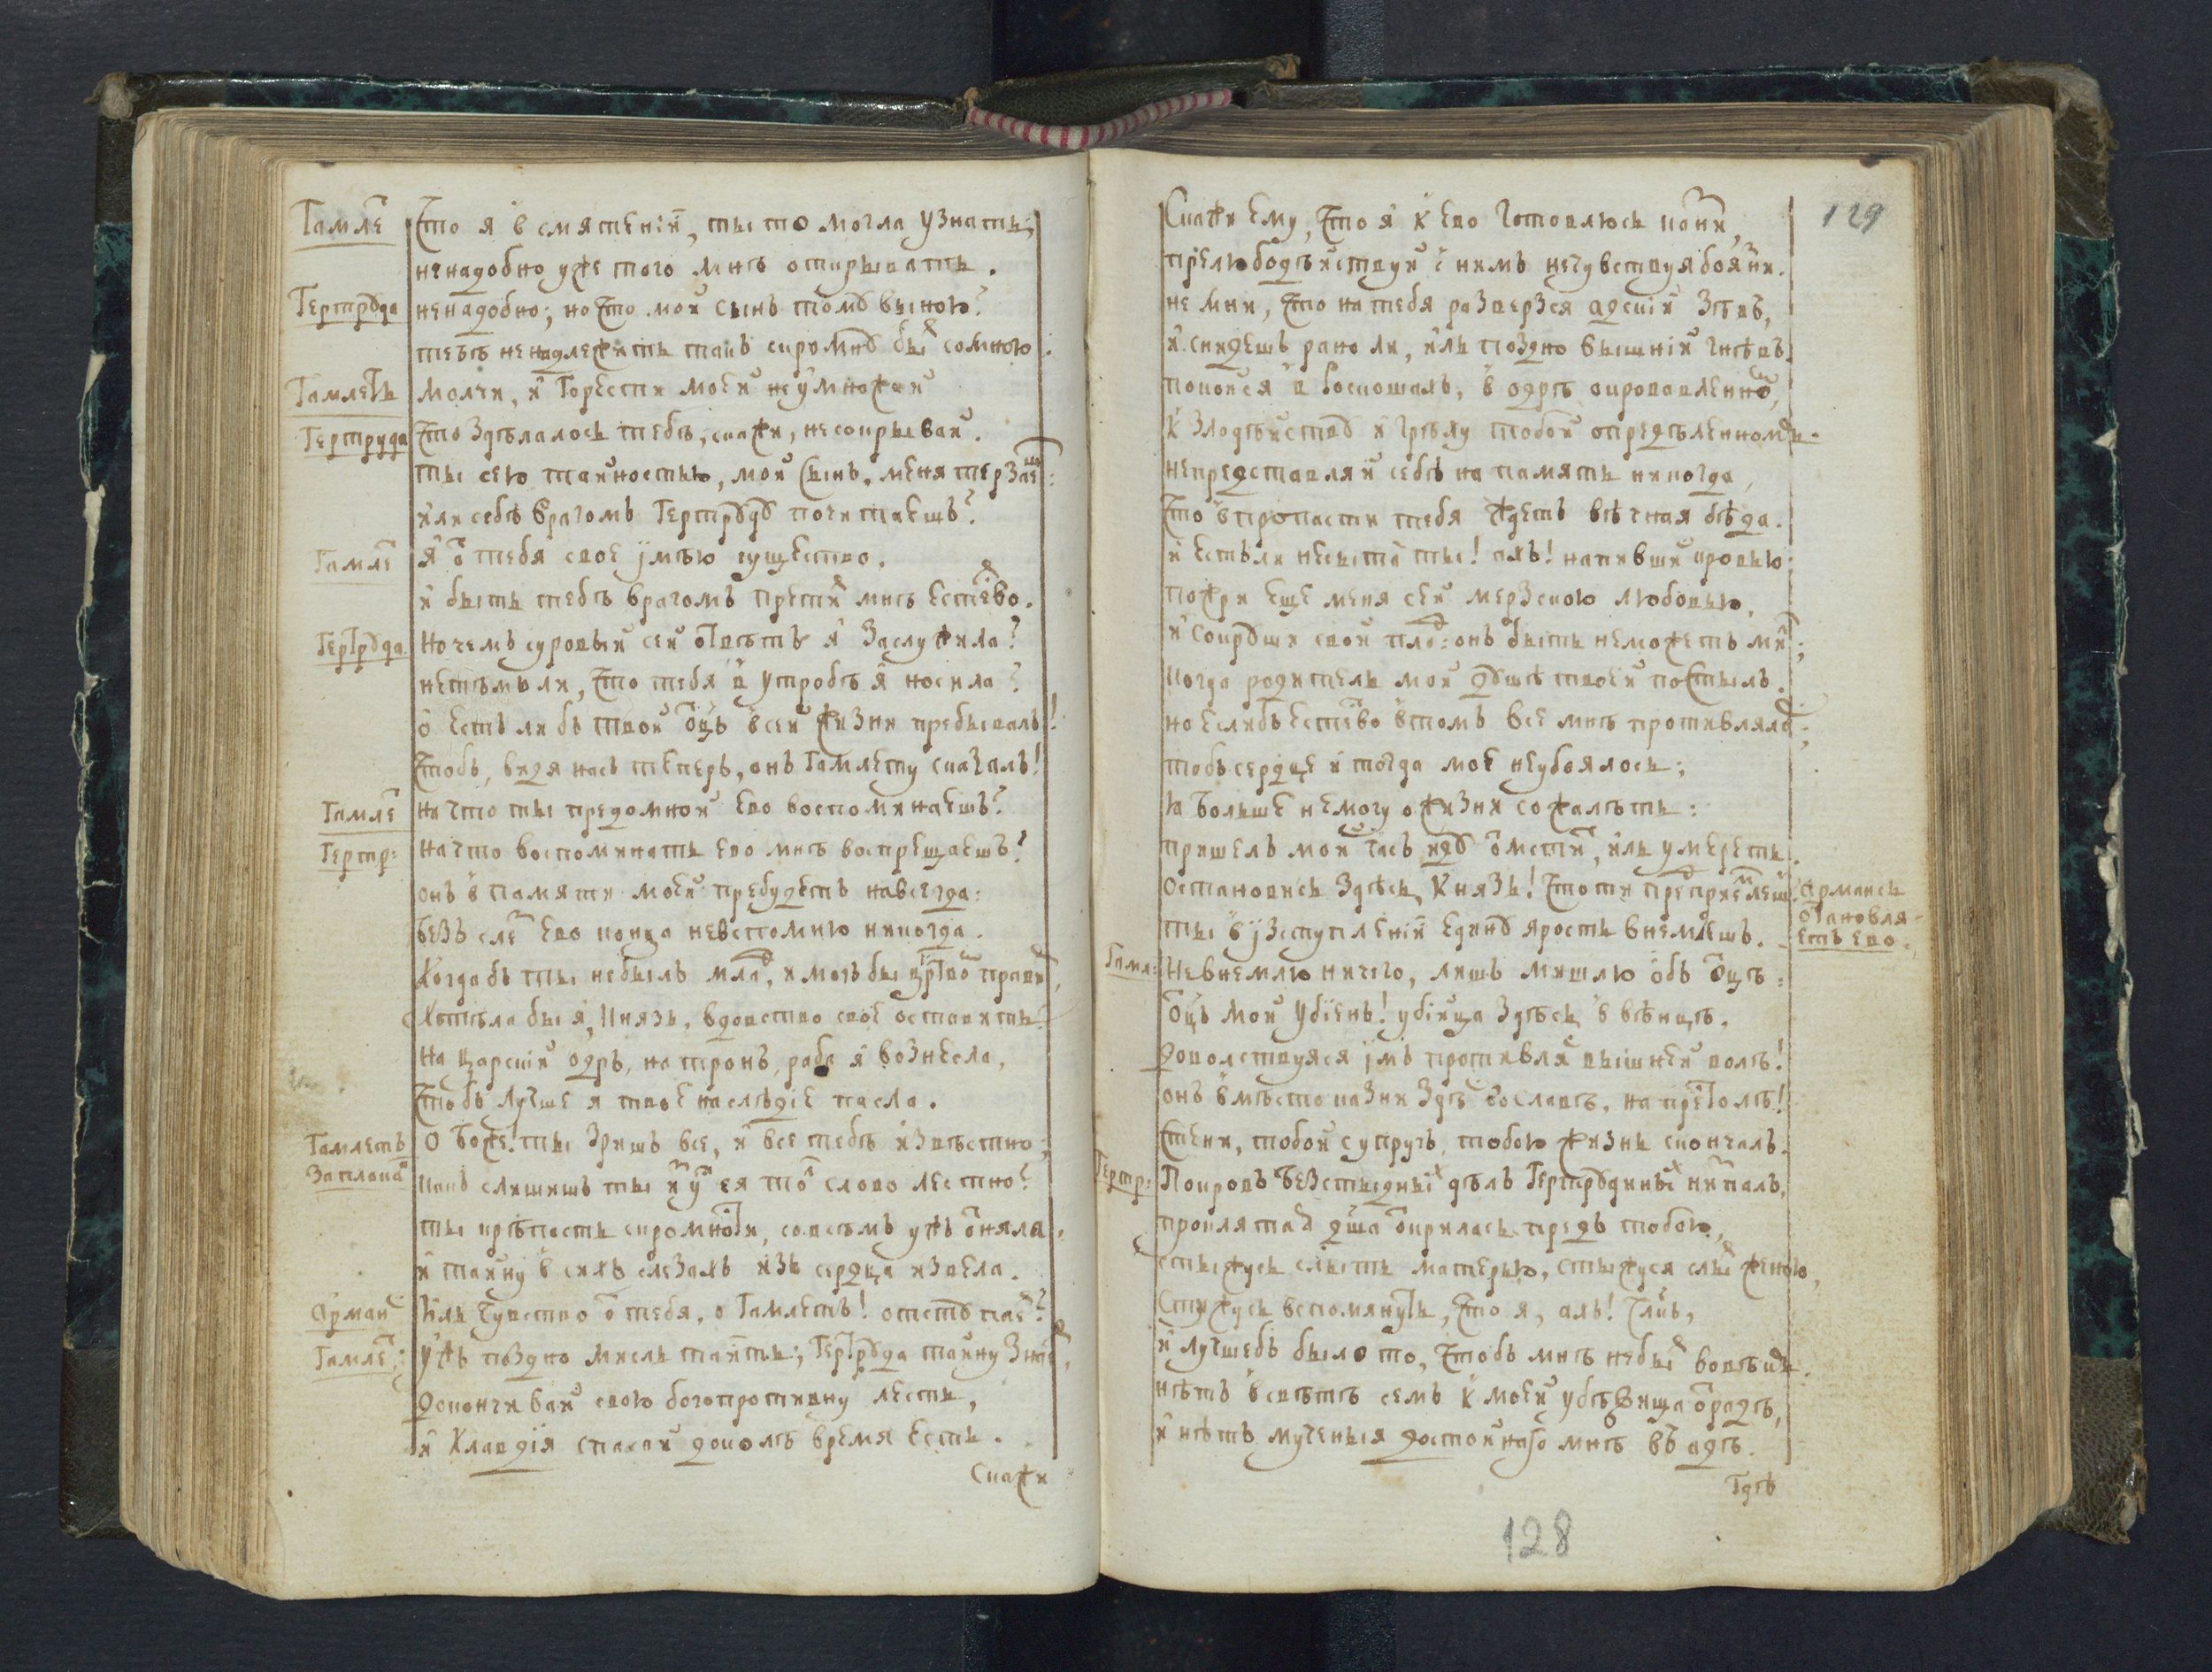 Гамле҇ Что я в смятенїи, ты то могла узнать;
ненадобно уже того мнѣ открывать.
Гертрꙋда ненадобно; но что мой сынъ томꙋ виною?
тебѣ ненадлежитъ такъ скромнꙋ быⷮ сомною:
Гамлетъ молчи, и горести моей неумножай
Гертруда Что здѣлалось тебѣ, скажи, несокрывай.
ты сею тайностью, мой сынъ, меня терзаеⷲ:
или себѣ врагомъ Гертрꙋдꙋ почитаешъ?
Гамлеⷮ я ѿ тебя свое имѣю существо.
и быть тебѣ врагомъ претиⷮ мнѣ естеⷭво.
Гертрꙋда Но чемъ суровый сей ѿвѣтъ я заслужила?
нетѣмъ ли, что тебя в утробѣ я носила?
о естьли бъ твой оц҃ъ въ сей жизни пребывалъ!
Чтобъ, видя насъ теперь, онъ Гамлету сказалъ!
Гамлеⷮ на что ты предомной ево воспоминаешъ?
Гертр: на что воспоминать ево мнѣ воспрещаешъ?
онъ в памяти моей пребудетъ навсегда:
безъ слеⷥ ево конца невспомню никогда.
Когда бъ ты небылъ млаⷣ, и могъ бы црⷭтвоⷨ правиⷮ,
Хотѣла бы я, Князь, вдовство свое оставить?
на Царскїй одръ, на тронъ, раба я вознесла,
Чтобъ лучше я твое наслѣдїе пасла.
Гамлетъ О Боже! ты зришъ все, и все тебѣ извѣстно;
заплакаⷡ Какъ слышишъ ты изъ уⷭ ея тоⷧ слово лестно?
ты крѣпость скромноⷭти, совсѣмъ ужъ ѿняла:
и тайну в сихъ слезахъ изъ сердца извела.
Арманⷭ Иль чувство ѿ тебя, о Гамлетъ! отстꙋпаеⷮ?
Гамлеⷮ: ужъ поздно мысль таить; Гертрꙋда тайну знаеⷮ,
доканчивай свою богопротивну лесть,
и Клавдїя спасай доколѣ время есть.
Скажи
129
Скажи ему, что я к ево готовлюсь казни,
прелюбодѣйствуй с нимъ нечувствуя боязни.
не мни, что на тебя разверзся адскїй зѣвъ,
и снидешъ рано ли, иль поздно вышнїй гнѣвъ.
покойся в роскошахъ, в одрѣ окровавленноⷨ,
к злодѣйствꙋ и грѣху тобой опредѣленномъ.
непредставляй себѣ на память никогда,
Что в пропасти тебя ждетъ вѣчная бѣда.
и естьли несыта ты! ахъ! напившись кровью:
пожри еще меня сей мерзскою любовью.
и сокрꙋши свой плоⷣ: онъ быть неможетъ миⷧ;
Когда родитель мой дꙋшѣ твоей постылъ.
но еслибъ естеⷭво втомъ все мнѣ противлялоⷭ;
тобъ сердце и тогда мое неубоялось;
Я больше немогу о жизни сожалѣть:
пришелъ мой часъ, идꙋ ѿмстиⷮ, иль умереть.
остановись здѣсь, Князь! что ты предприемлешъ. Армансъ
оⷭтановля-
етъ ево.
ты в изступленїи единꙋ ярость внемлешъ.
Гамл: Невнемлю ничего, лишъ мышлю объ оц҃ѣ:
Оц҃ъ мой убїенъ! убїйца здѣсь в вѣнцѣ.
доволствуяся имъ противляⷭ вышней волѣ!
онъ вмѣсто казни здѣⷭ во славѣ, на преⷭтолѣ!
Стени, тобой супругъ, тобою жизнь скончалъ.
Гертр: Покровъ безстыдныⷯ дѣлъ Гертрꙋдиныⷯ ниспалъ,
проклятая дш҃а ѿкрылась предъ тобою,
стыжусь слыть матерью, стыжуся слыⷮ женою,
Стыжусь вспомянуть, что я, ахъ! члвкъ,
и лучшебъ было то, чтобъ мнѣ небыⷮ вовѣкъ.
нѣтъ в свѣтѣ семъ к моей убѣжища ѿрадѣ,
и нѣтъ мученья достойнаго мнѣ въ адѣ.
Гдѣ
128